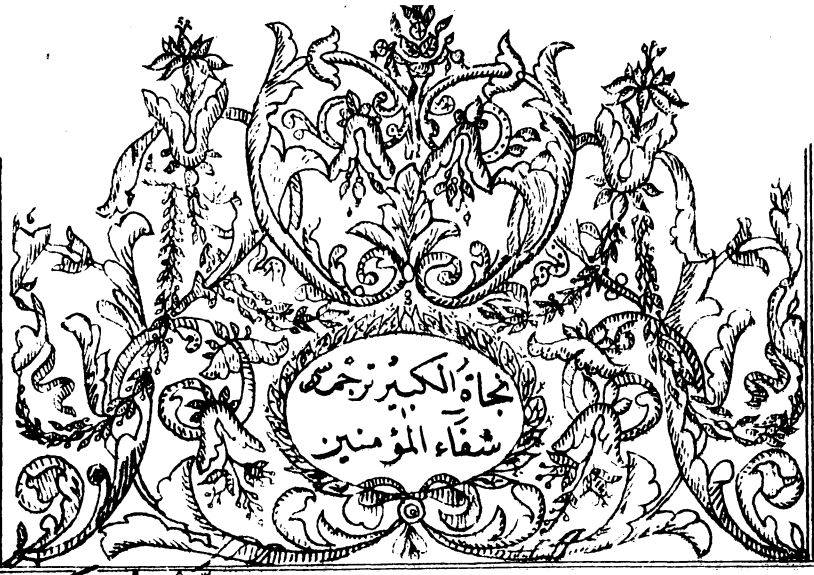 نجاة الكبير ترجمهٔ
شفآء المؤمنين